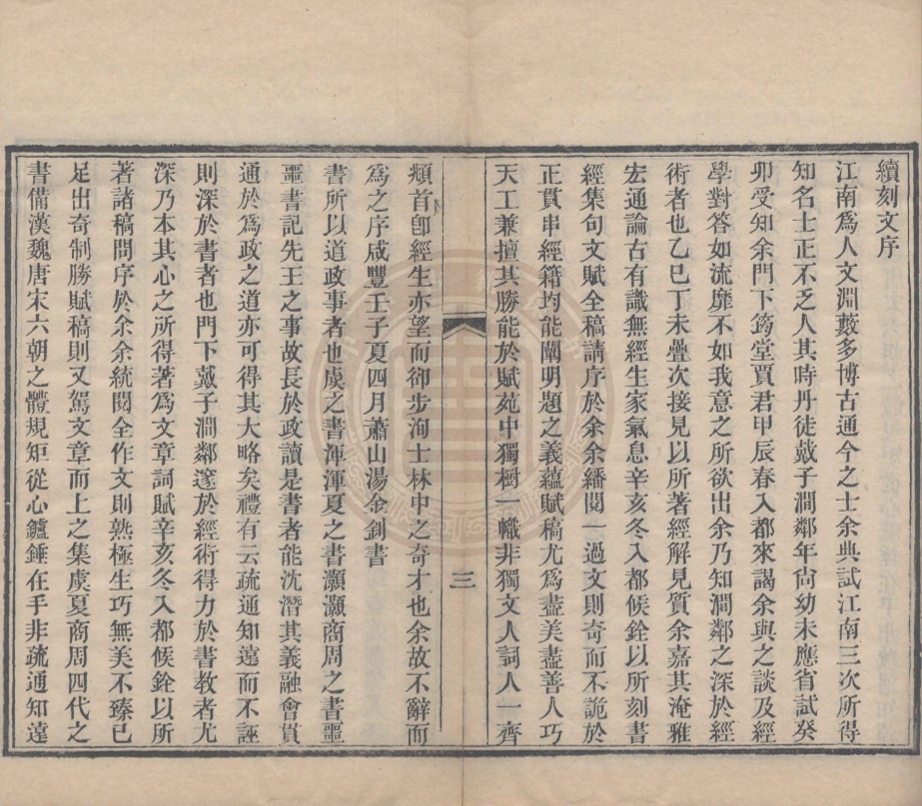 續刻文序
江南爲人文淵藪多博古通今之士余典試江南三次所得
知名士正不乏人其時丹徒戴子澗鄰年尙幼未應省試癸
卯受知余門下筠堂賈君甲辰春入都來謁余與之談及經
學對答如流靡不如我意之所欲出余乃知澗鄰之深於經
術者也乙巳丁未疊次接見以所著經解見質余嘉其淹雅
宏通論古有識無經生家氣息辛亥冬入都候銓以所刻書
經集句文賦全稿請序於余余繙閱一過文則奇而不詭於
正貫串經籍均能闡明題之義蘊賦稿尤爲盡美盡善人巧
天工兼擅其勝能於賦苑中獨樹一幟非獨文人詞人一齊
三
頫首卽經生亦望而卻步洵士林中之奇才也余故不辭而
爲之序咸豐壬子夏四月蕭山湯金釗書
書所以道政事者也虞之書渾渾夏之書灝灝商周之書噩
噩書記先王之事故長於政讀是書者能沈潛其義融會貫
通於爲政之道亦可得其大略矣禮有云疏通知遠而不誣
則深於書者也門下戴子澗鄰邃於經術得力於書敎者尤
深乃本其心之所得著爲文章詞賦辛亥冬入都候銓以所
著諸稿問序於余余統閱全作文則熟極生巧無美不臻已
足出奇制勝賦稿則又駕文章而上之集虞夏商周四代之
書備漢魏唐宋六朝之體規矩從心鑪錘在手非疏通知遠